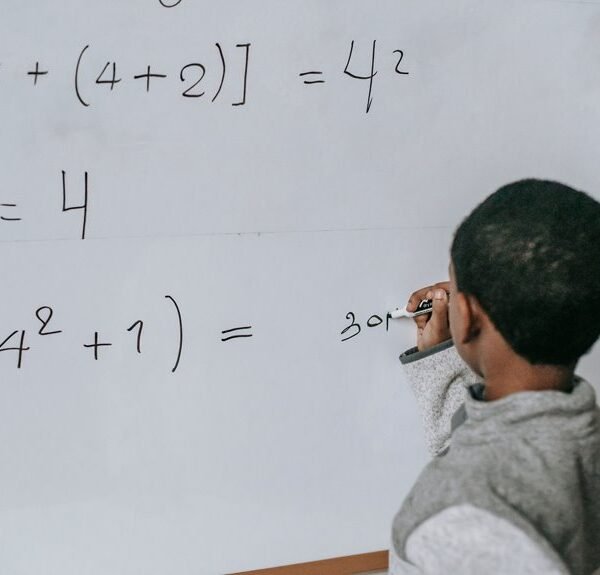 + (4+2)] = 42
= 4
4² + 1) = 30